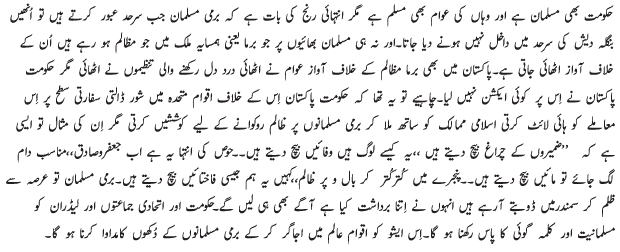 حکومت بھی مسلمان ہے اور وہاں کی عوام بھی مسلم ہے مگر انتہائی رنج کی بات ہے کہ برمی مسلمان جب سرحد عبور کرتے ہیں تو اُنھیں
بنگلہ دیش کی سرحد میں داخل نہیں ہونے دیا جاتا۔اور نہ ہی مسلمان بھائیوں پر جو برما یعنی ہمسایہ ملک میں جو مظالم ہو رہے ہیں اُن کے
خلاف آواز اُٹھائی جاتی ہے۔پاکستان میں بھی برما مظالم کے خلاف آواز عوام نے اٹھائی درد دل رکھنے والی تنظیموں نے اٹھائی مگر حکومت
پاکستان نے اِس پر کوئی ایکشن نہیں لیا۔چاہیے تو یہ تھا کہ حکومت پاکستان اِس کے خلاف اقوام متحدہ میں شور ڈالتی سفارتی سطح پر اِس
معاملے کو ہائی لائٹ کرتی اسلامی ممالک کو ساتھ ملا کر برمی مسلمانوں پر ظالم روکوانے کے لیے کوششیں کرتی مگر اِن کی مثال تو ایسی
ہے کہ ’’ضمیروں کے چراغ بیچ دیتے ہیں ،،یہ کیسے لوگ ہیں وفائیں بیچ دیتے ہیں۔۔حوس کی انتہا یہ ہے اب جعفروصادق،،مناسب دام
لگ جائے تو مائیں بیچ دیتے ہیں۔۔پنجرے میں کتر کتر کر بال و پر ظالم،،کہیں یہ ہم جیسی فاختائیں بیچ دیتے ہیں۔برمی مسلمان تو عرصہ سے
ظلم کر سمندر میں ڈوبتے آرہے ہیں انہوں نے اِتنا برداشت کیا ہے آگے بھی ہی لیں گے۔حکومت اور اتحادی جماعتوں اور لیڈران کو
مسلمانیت اور کلمہ گوئی کا پاس رکھنا ہو گا۔اِس ایشو کو اقوام عالم میں اجاگر کر کے برمی مسلمانوں کے دُکھوں کامداوا کرنا ہو گا۔